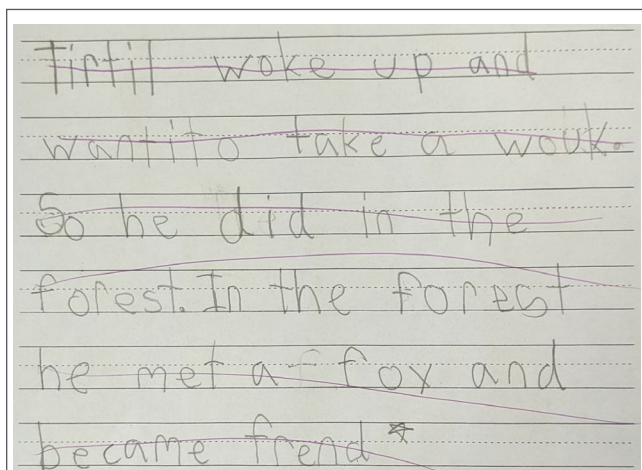 Tirtil woke up and
wantito take a wouk.
So he did in the
forest. In the forest
he met a fox and
became frend*